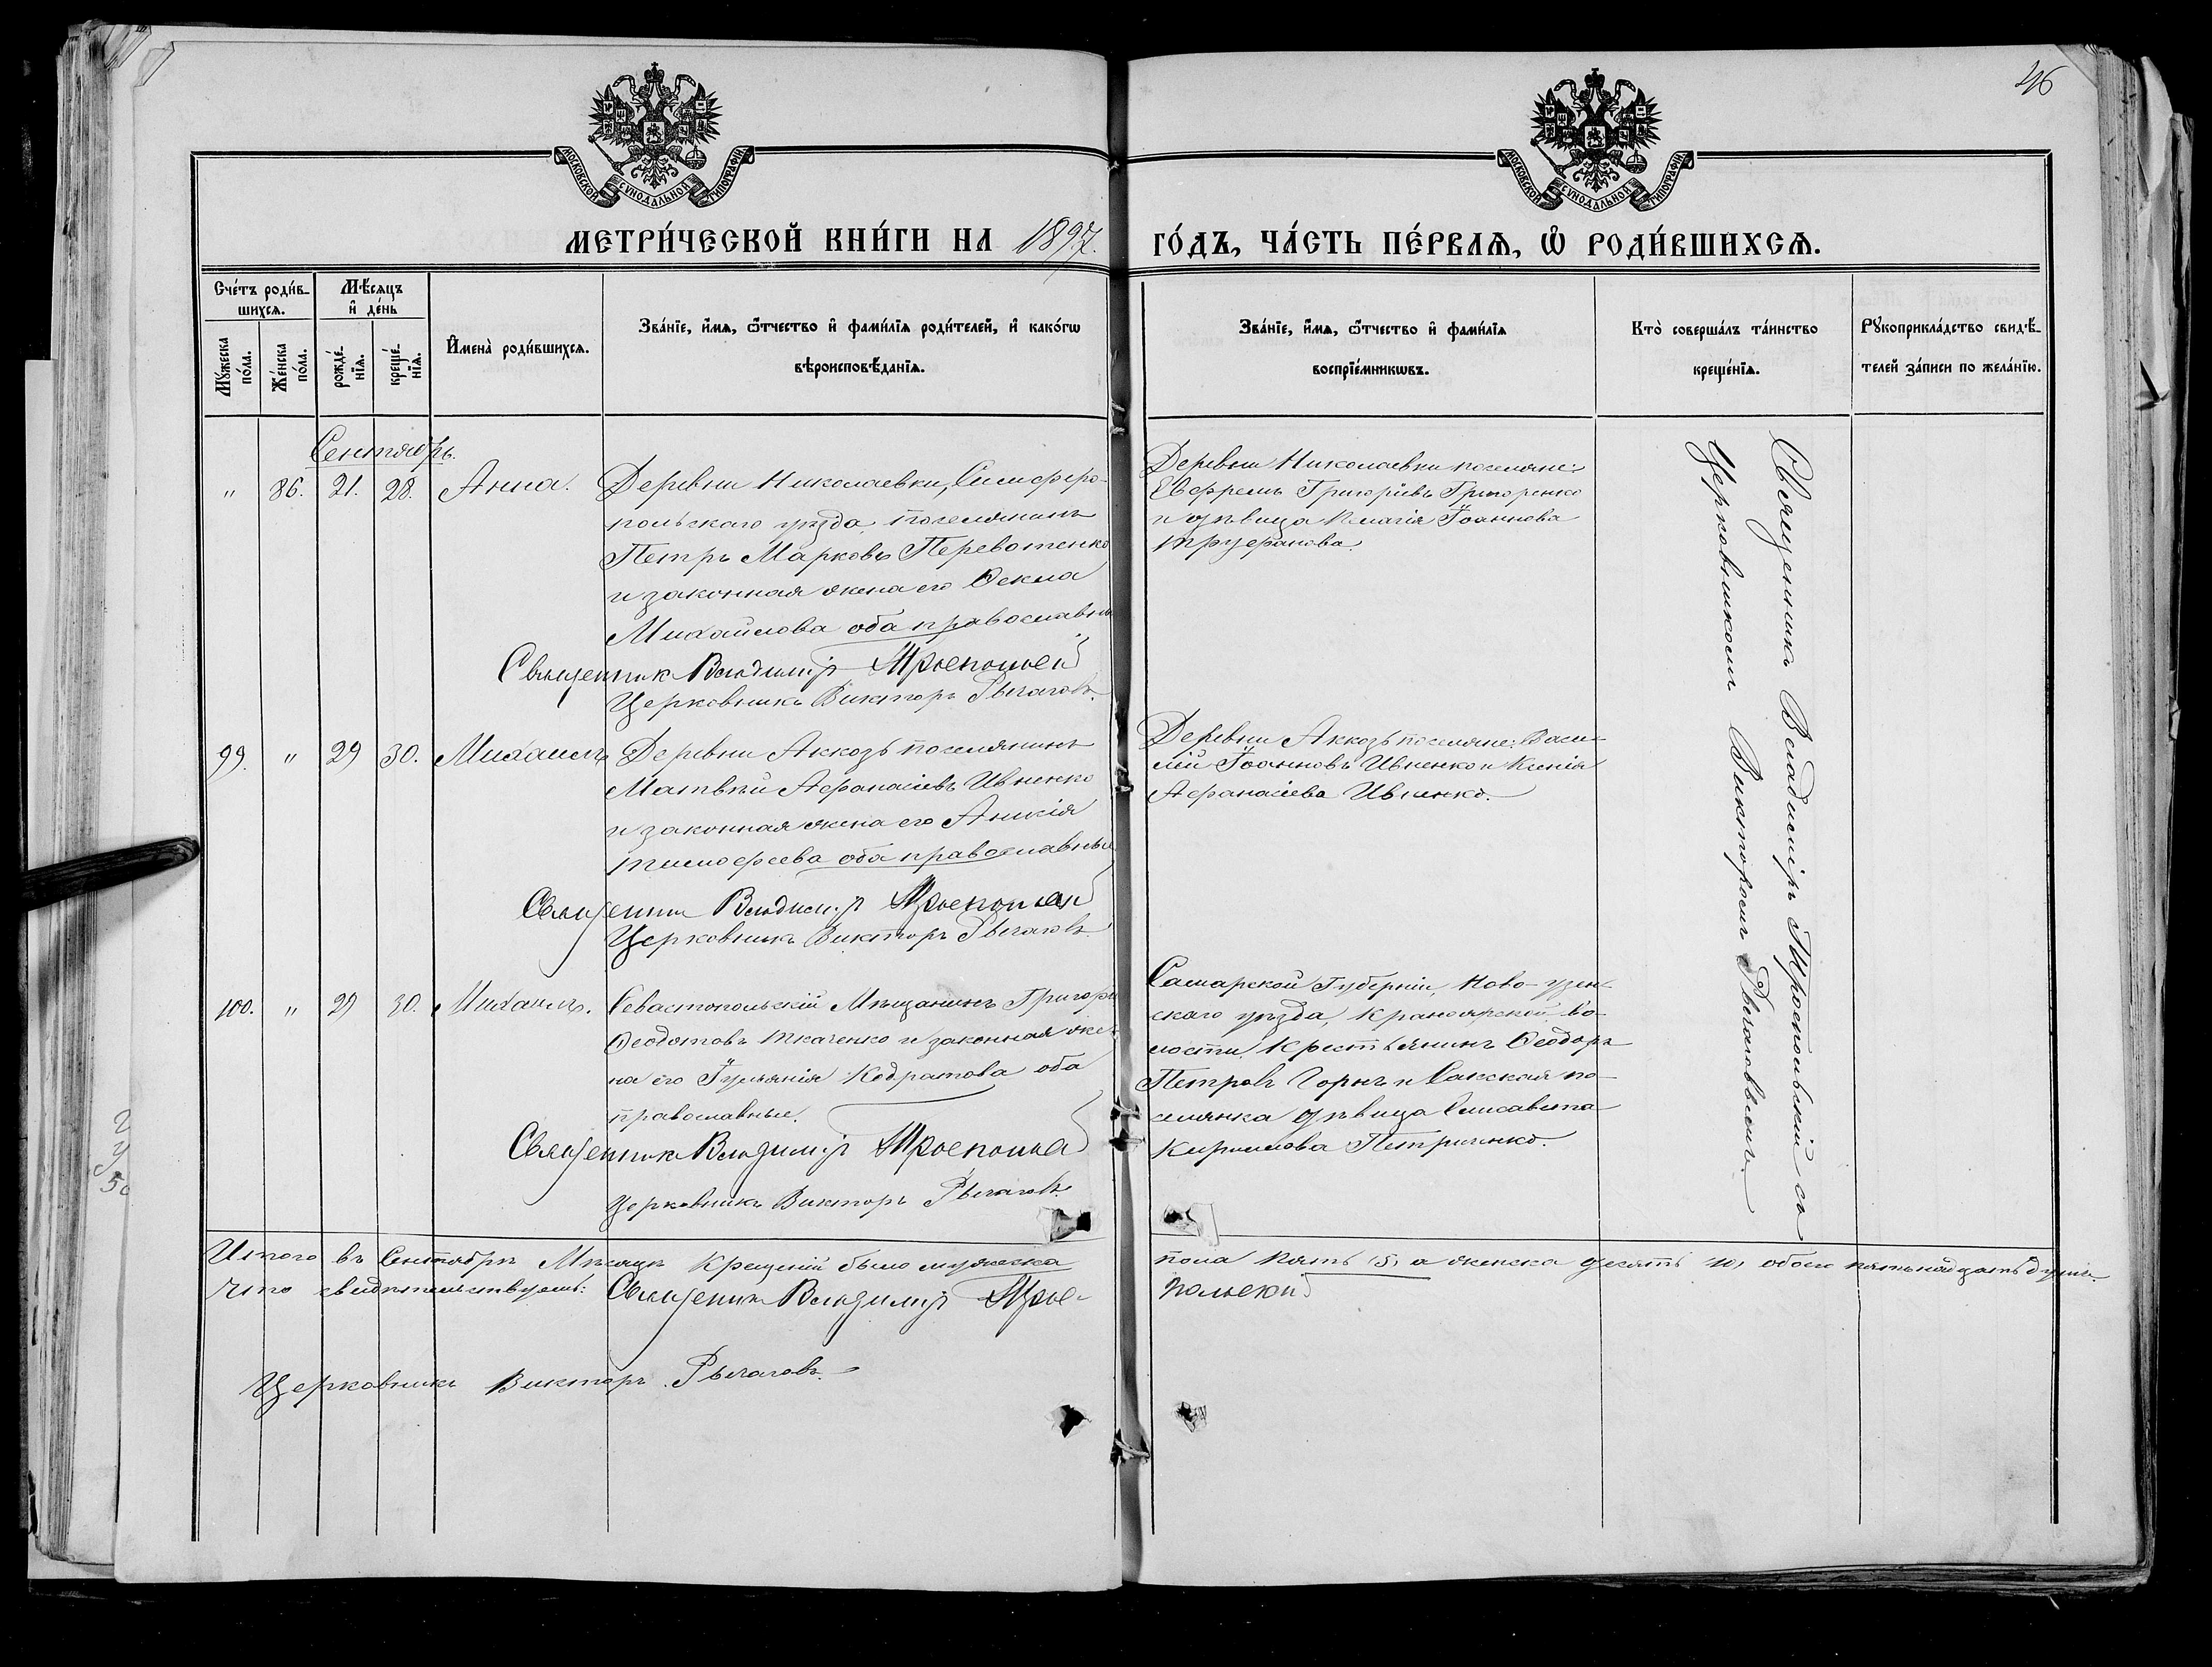 46
МОСКОВСКОЙ СУНОДАЛЬНОЙ ТИПОГРАФІИ
МОСКОВСКОЙ СУНОДАЛЬНОЙ ТИПОГРАФІИ
МЕТРИ́ЧЕСКОЙ КНИ́ГИ НА 1897.
ГО́ДЪ, ЧА́СТЬ ПЕ́РВАѦ, Ѡ҆ РОДИ́ВШИХСѦ.
Сче́тъ роди́в-
шихсѧ.
Мꙋ́жеска по́ла.
Же́нска по́ла.
Мѣ́сѧцъ
и҆ де́нь
рожде́-
нїѧ.
креще́-
нїѧ.
И҆мена̀ роди́вшихсѧ.
Зва́нїе, и҆́мѧ, ѻ҆́тчество и҆ фами́лїѧ роди́телей, и҆ како́гѡ
вѣроисповѣ́данїѧ.
Зва́нїе, и҆́мѧ, ѻ҆́тчество и҆ фами́лїѧ
воспрїе́мникѡвъ.
Кто̀ соверша́лъ та́инство
креще́нїѧ.
Рꙋкоприкла́дство свидѣ́-
телей за́писи по жела́нїю.
Сентябрь.
" 86. 21. 28. Анна.
Деревни Николаевки, Симферо-
польскаго уѣзда поселянинъ
Петръ Марковъ Перевотенко
и законная жена его Ѳекла
Михайлова оба православны
Священникъ Владиміръ Трепольскій
Церковникъ Викторъ Рычаговъ.
Деревни Николаевки поселяне:
Евфремъ Григоріевъ Григоренко
и дѣвица Пелагія Іоаннова
Труфанова.
99. " 29 30. Михаилъ
Деревни Аккозъ поселянинъ
Матвѣй Аѳанасіевъ Ивненко
и законная жена его Аникія
Тимоѳеева оба православные
Священникъ Владиміръ Трепольскій
Церковникъ Викторъ Рычаговъ
Деревни Аккозъ поселяне: Васи-
лій Іоанновъ Ивненко и Ксенія
Аѳанасіева Ивненко.
100. " 29 30. Михаилъ.
Севастопольскій Мѣщанинъ Григорій
Ѳеодотовъ Ткаченко и законная же-
на его Іуліанія Кодратова оба
православные.
Священникъ Владиміръ Трепольскій
Церковникъ Викторъ Рычаговъ.
Самарской Губерніи, Ново-узен-
скаго уѣзда, Красноярской во-
лости Крестьянинъ Ѳеодоръ
Петровъ Горнъ и Сакская по-
селянка дѣвица Елисавета
Кириллова Петриченко.
Священникъ Владиміръ Трепольскій съ
Церковникомъ Викторомъ Рычаговымъ.
Итого въ Сентябрѣ Мѣсяцѣ Крещеній было мужеска
пола пять (5) а женска десять 10, обоего пятьнадцать душъ.
Что свидѣтельствуемъ: Священникъ Владиміръ Тре-
польскій
Церковникъ Викторъ Рычаговъ.